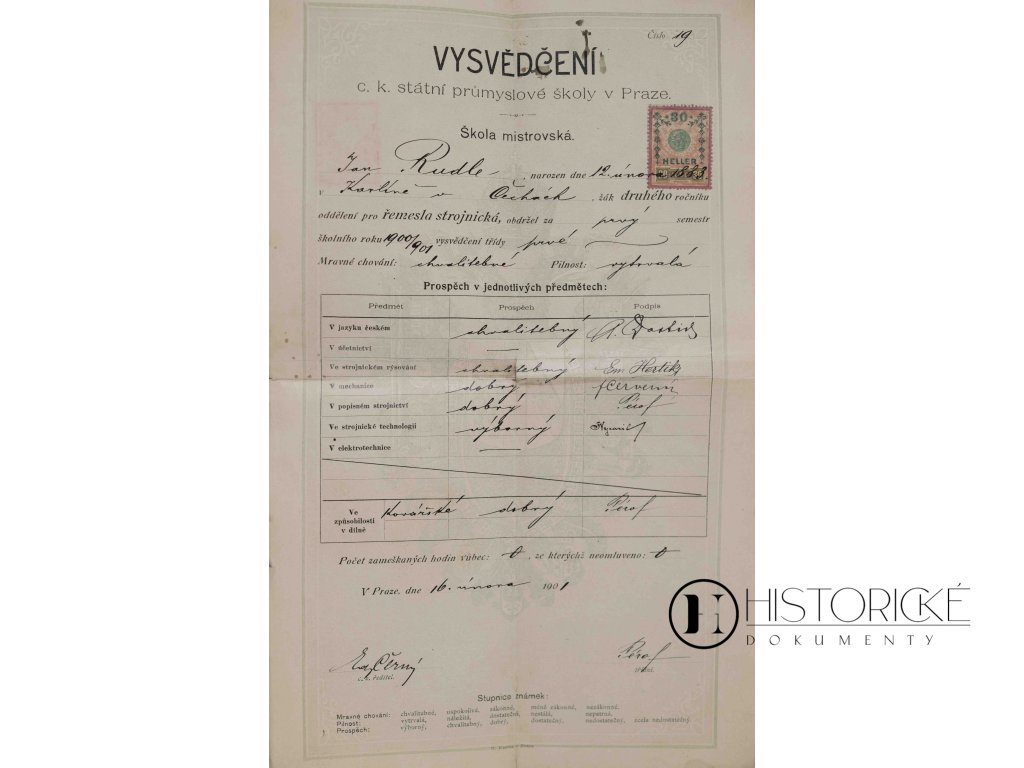 Číslo 19
VYSVĚDČENÍ
c. k. státní průmyslové školy v Praze.
Škola mistrovská.
30
HELLER
Jan Rudle, narozen dne 12. února 1883.
v Karlíně v Čechách, žák druhého ročníku
oddělení pro řemesla strojnická, obdržel za prvý semestr
školního roku 1900/901 vysvědčení třídy prvé
Mravné chování: chvalitebné Pilnost: vytrvalá
Prospěch v jednotlivých předmětech:
Předmět Prospěch Podpis
V jazyku českém chvalitebný
V účetnictví —
Ve strojnickém rýsování chvalitebný Em. Hertík
V mechanice dobrý Červený
V popisném strojnictví dobrý
Ve strojnické technologii výborný
V elektrotechnice —
Ve způsobilosti v dílně Kovářské dobrý
Počet zameškaných hodin vůbec: 0, ze kterýchž neomluveno: 0
V Praze, dne 16. února 1901
HISTORICKÉ
DOKUMENTY
Ed. Černý
c. k. ředitel.
Stupnice známek:
Mravné chování: chvalitebné, uspokojivé, zákonné, méně zákonné, nezákonné.
Pilnost: vytrvalá, náležitá, dostatečná, nestálá, nepatrná.
Prospěch: výborný, chvalitebný, dobrý, dostatečný, nedostatečný, zcela nedostatečný.